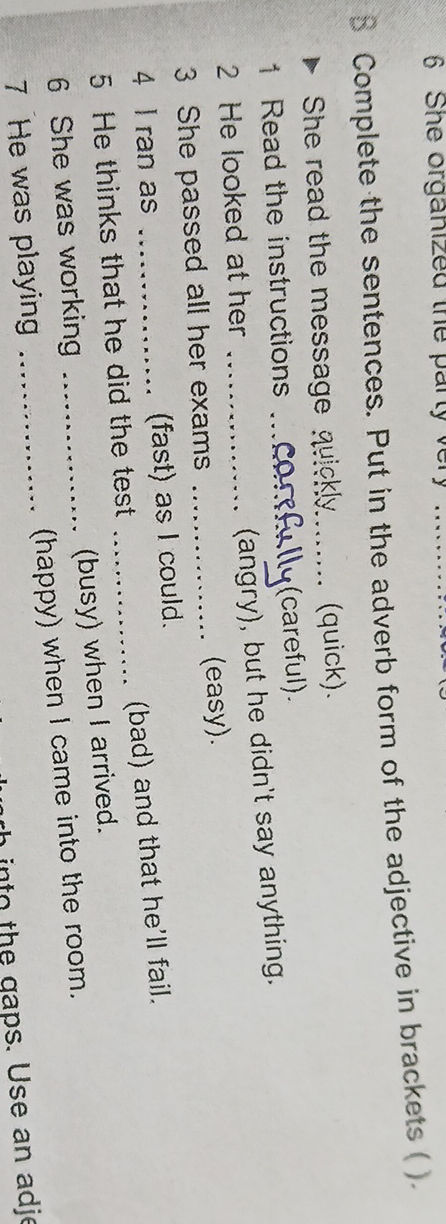 6 She organized the party very ..............
B Complete the sentences. Put in the adverb form of the adjective in brackets ( ).
▶ She read the message quickly........ (quick).
1 Read the instructions ...carefully (careful).
2 He looked at her .............. (angry), but he didn't say anything.
3 She passed all her exams .............. (easy).
4 I ran as .............. (fast) as I could.
5 He thinks that he did the test .............. (bad) and that he'll fail.
6 She was working .............. (busy) when I arrived.
7 He was playing .............. (happy) when I came into the room.
into the gaps. Use an